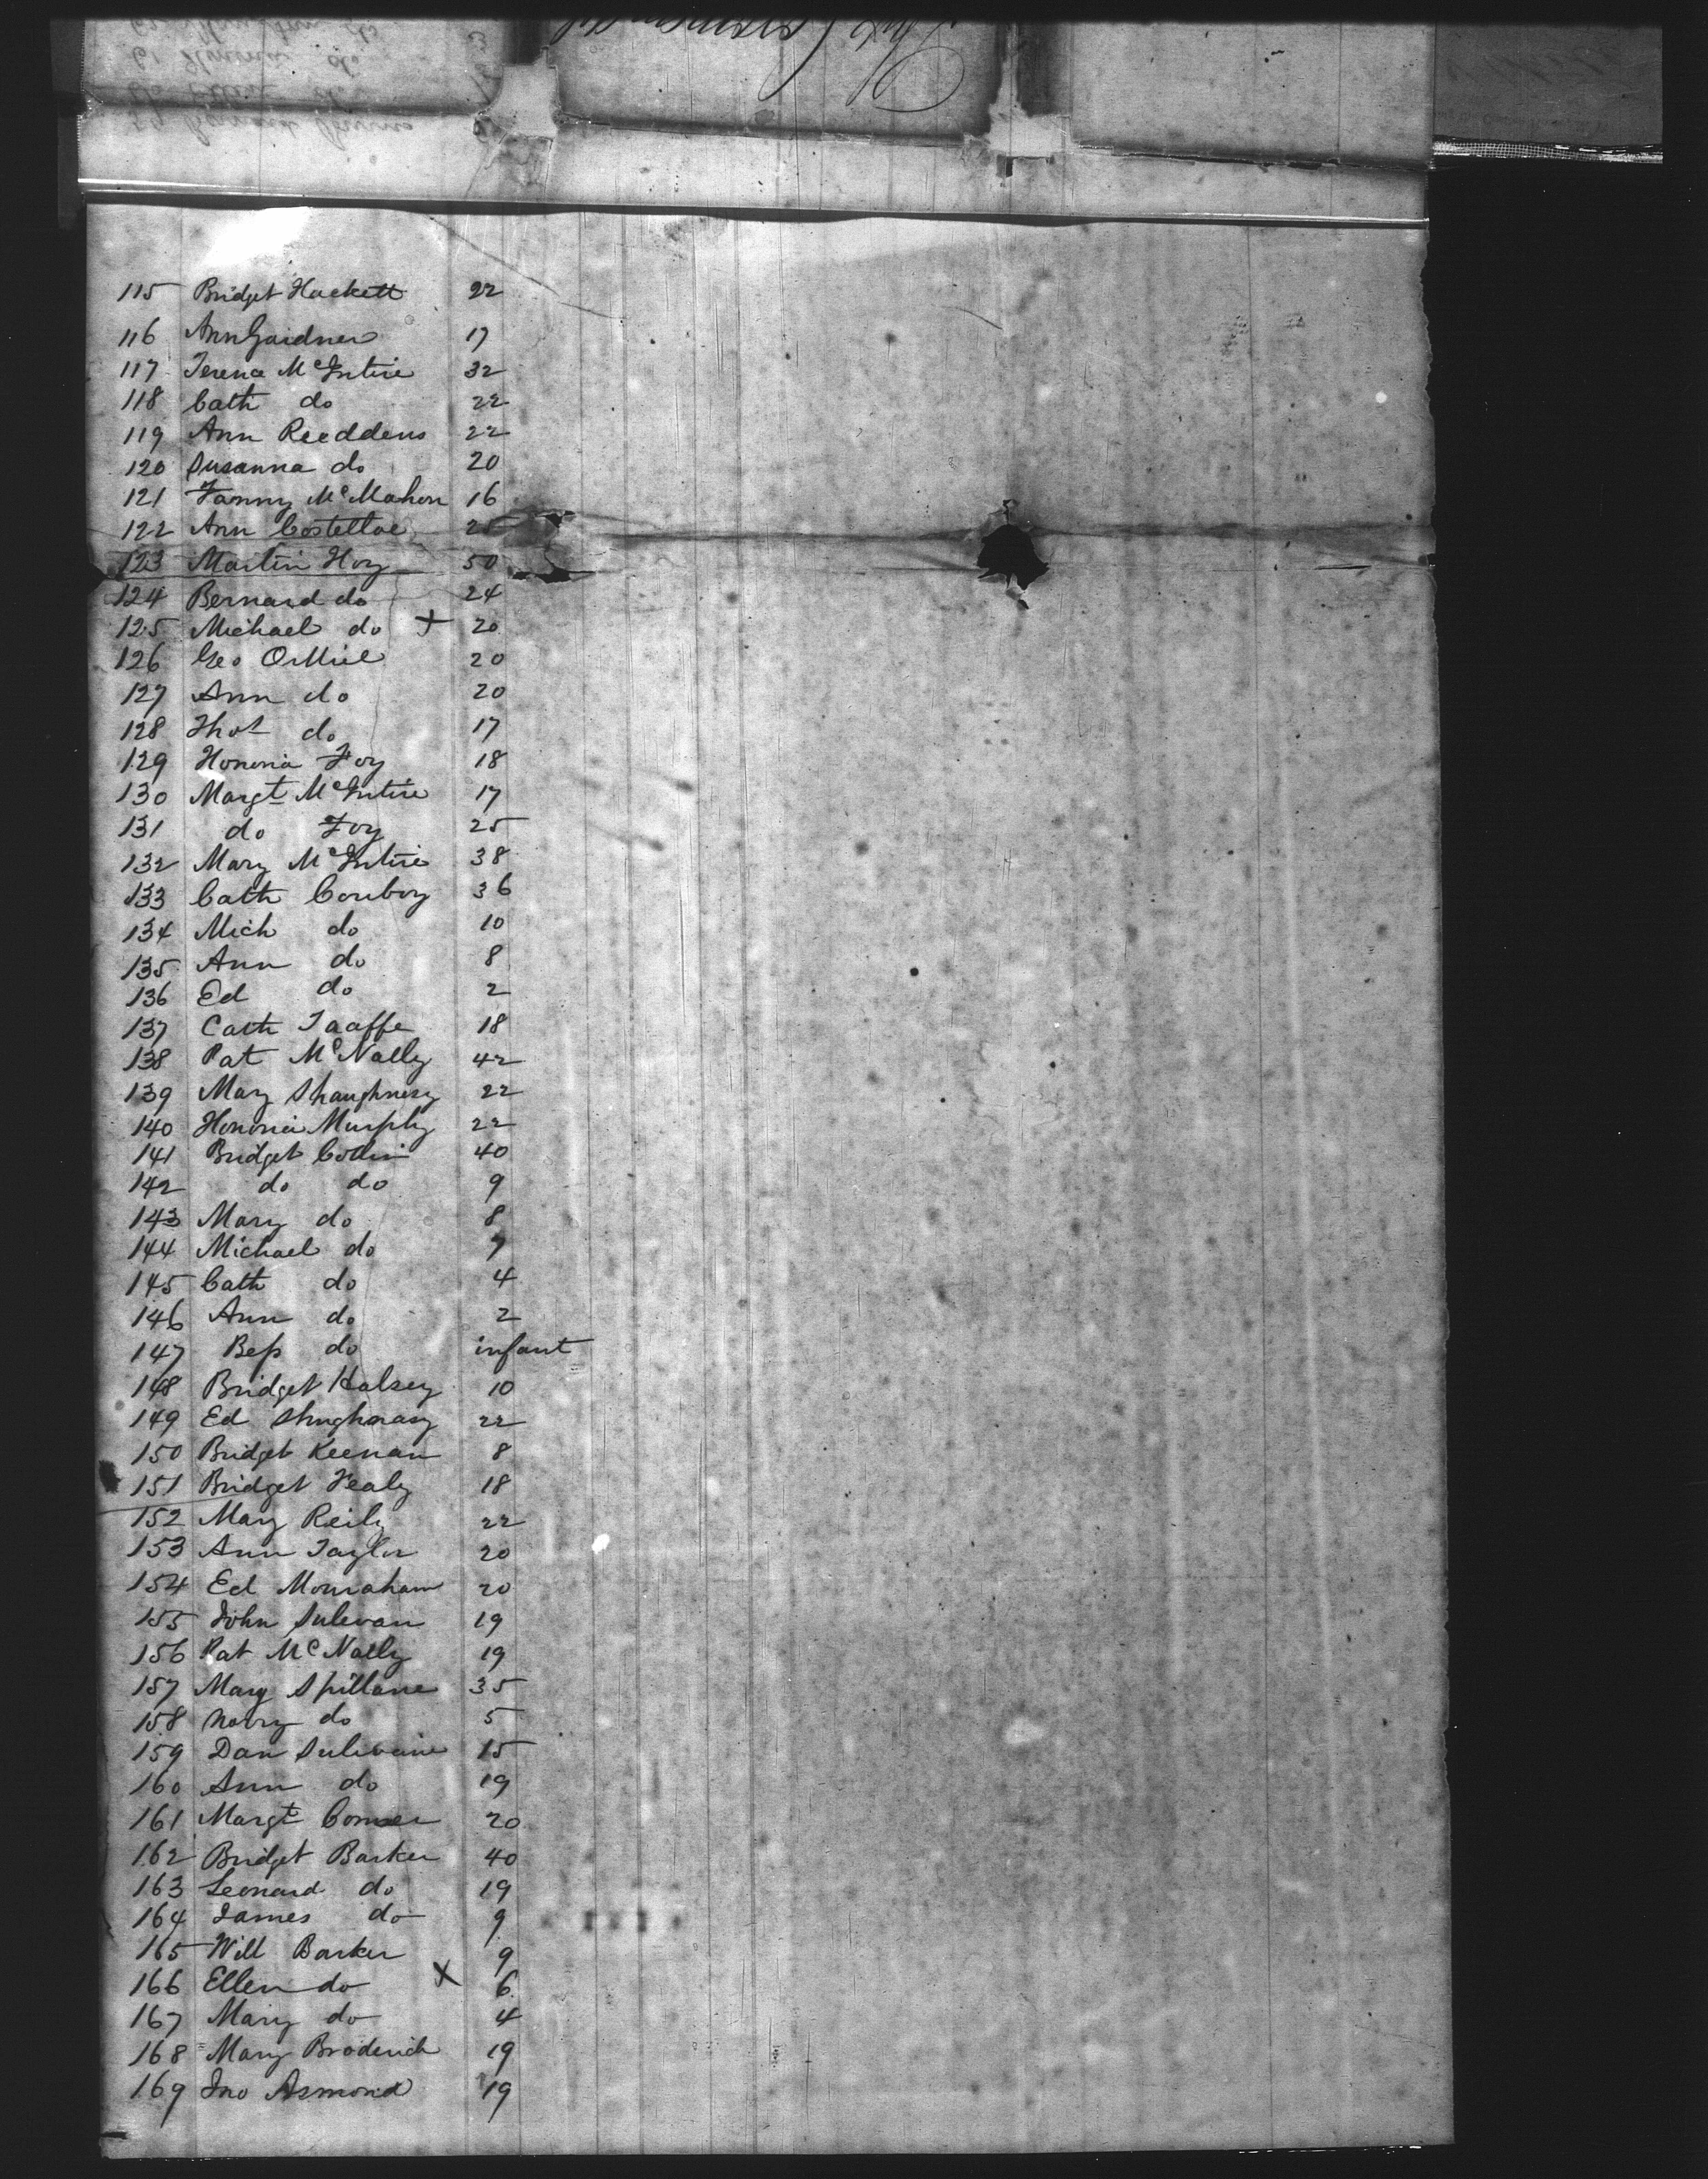 115 Bridget Hackett 22
116 Ann Gardner 17
117 Terence McIntire 32
118 Cath do 22
119 Ann Reeddens 22
120 Susanna do 20
121 Fanny McMahon 16
122 Ann Costelloe
123 Martin Hoy 50
124 Bernard do 24
125 Michael do + 20
126 Geo 20
127 Ann do 20
128 Thos do 17
129 Honoria Foy 18
130 Margt McIntire 17
131 do Foy 25
132 Mary McIntire 38
133 Cath Conboy 36
134 Mich do 10
135 Ann do 8
136 Ed do 2
137 Cath Taaffe 18
138 Pat McNally 42
139 Mary Shaughnesy 22
140 Honoria Murphy 22
141 Bridget 40
142 do do 9
143 Mary do 8
144 Michael do 7
145 Cath do 4
146 Ann do 2
147 Bess do infant
148 Bridget Halsey 10
149 Ed Shughnasy 22
150 Bridget Keenan 8
151 Bridget Fealy 18
152 Mary Reily 22
153 Ann Taylor 20
154 Ed 20
155 John Sulevan 19
156 Pat McNally 19
157 Mary Spillane 35
158 Norry do 5
159 Dan 15
160 Ann do 19
161 Margt 20
162 Bridget Barker 40
163 Leonard do 19
164 James do 9
165 Will Barker 9
166 Ellen do x 6
167 Mary do 4
168 Mary Broderick 19
169 Jno Asmond 19